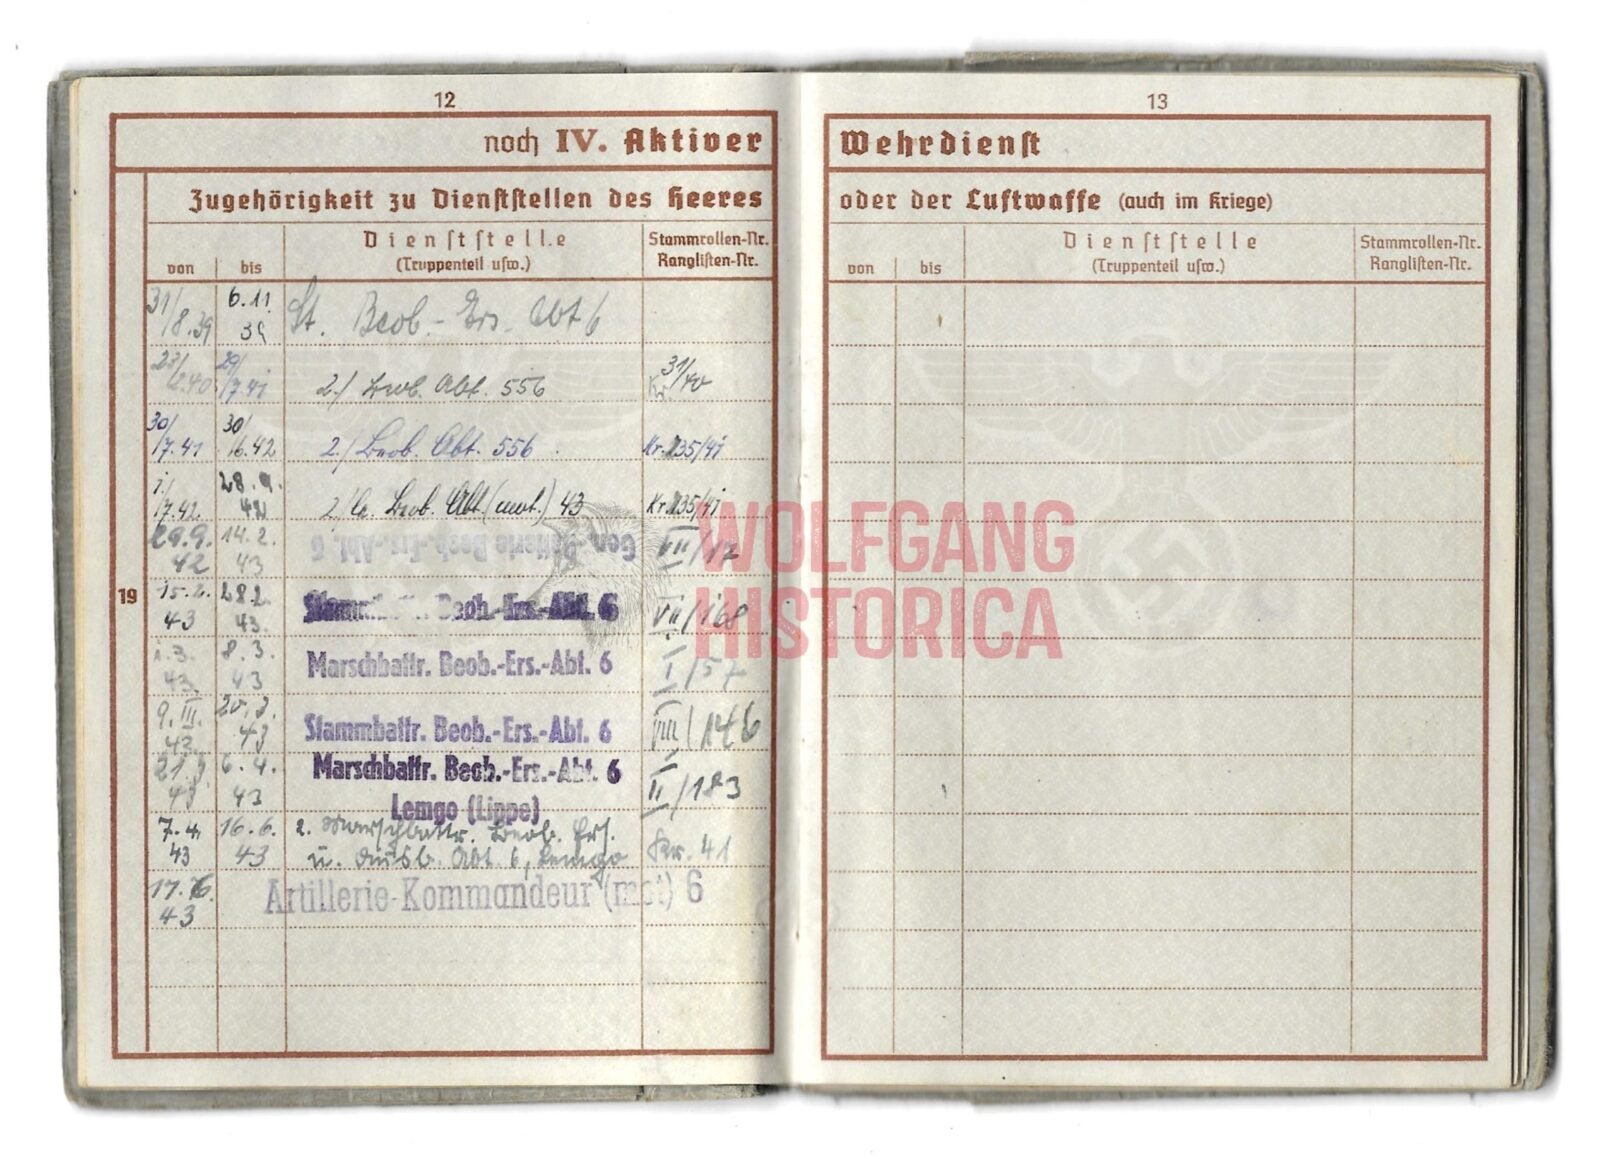 12
noch IV. Aktiver
Zugehörigkeit zu Dienststellen des Heeres
von bis Dienststelle (Truppenteil usw.) Stammrollen-Nr. Ranglisten-Nr.
31/8.39 6.11. 39 St. Beob.-Ers. Abt 6
23/ .40 29/7.41 2./ Beob. Abt. 556 Kr 31/40
30/7.41 30/6.42 2./ Beob. Abt. 556. Kr. 135/41
1./7.42. 28.9. 42 2./le. Beob. Abt. (mot.) 43 Kr. 135/41
29.9. 42 14.2. 43 Gen.-Batterie Beob.-Ers.-Abt. 6 VII/12
19
15.2. 43 28.2. 43. Stammbattr. Beob.-Ers.-Abt. 6 VII/168
1.3. 43. 8.3. 43 Marschbattr. Beob.-Ers.-Abt. 6 I/57
9.III. 43. 20.3. 43 Stammbattr. Beob.-Ers.-Abt. 6 VIII/146
21.3. 43 6.4. 43 Marschbattr. Beob.-Ers.-Abt. 6 II/183
Lemgo (Lippe)
7.4. 43 16.6. 43 2. Marschbattr. Beob. Ers. Kr. 41
u. Ausb. Abt. 6, Lemgo
17.6. 43 Artillerie-Kommandeur (mot) 6
13
Wehrdienst
oder der Luftwaffe (auch im Kriege)
von bis Dienststelle (Truppenteil usw.) Stammrollen-Nr. Ranglisten-Nr.
WOLFGANG
HISTORICA